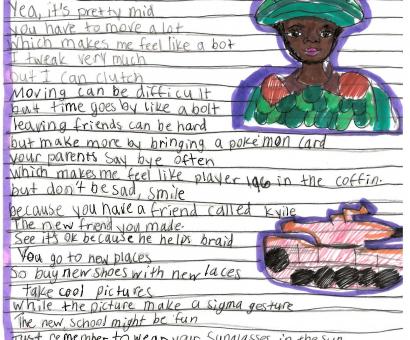 Yea, it's pretty mid
you have to move a lot
which makes me feel like a bot
I tweak very much
but I can clutch
Moving can be difficult
but time goes by like a bolt
leaving friends can be hard
but make more by bringing a pokemon card
your parents say bye often
which makes me feel like player 196 in the coffin.
but don't be sad, smile
because you have a friend called kyile
The new friend you made.
See it's ok because he helps braid
You go to new places
So buy new shoes with new laces
Take cool pictures
while the picture make a sigma gesture
The new school might be fun
Just remember to wear your sunglasses in the sun